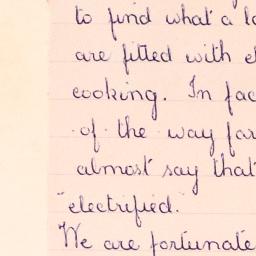 to find what a
are fitted with
cooking. In
of the way
almost say that
"electrified."
We are fortunate